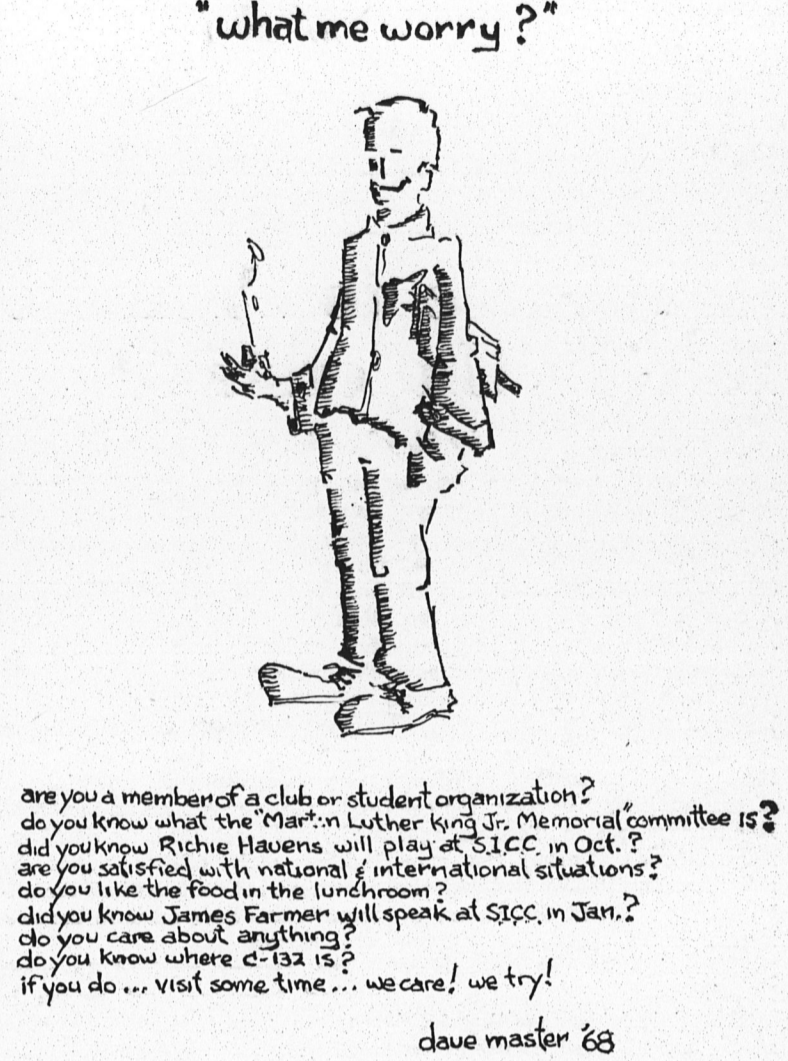 "what me worry?"
are you a member of a club or student organization?
do you know what the "Martin Luther King Jr. Memorial" committee is?
did you know Richie Havens will play at S.I.C.C. in Oct.?
are you satisfied with national & international situations?
do you like the food in the lunchroom?
did you know James Farmer will speak at S.I.C.C. in Jan.?
do you care about anything?
do you know where C-132 is?
if you do ... visit some time ... we care! we try!
dave master '68